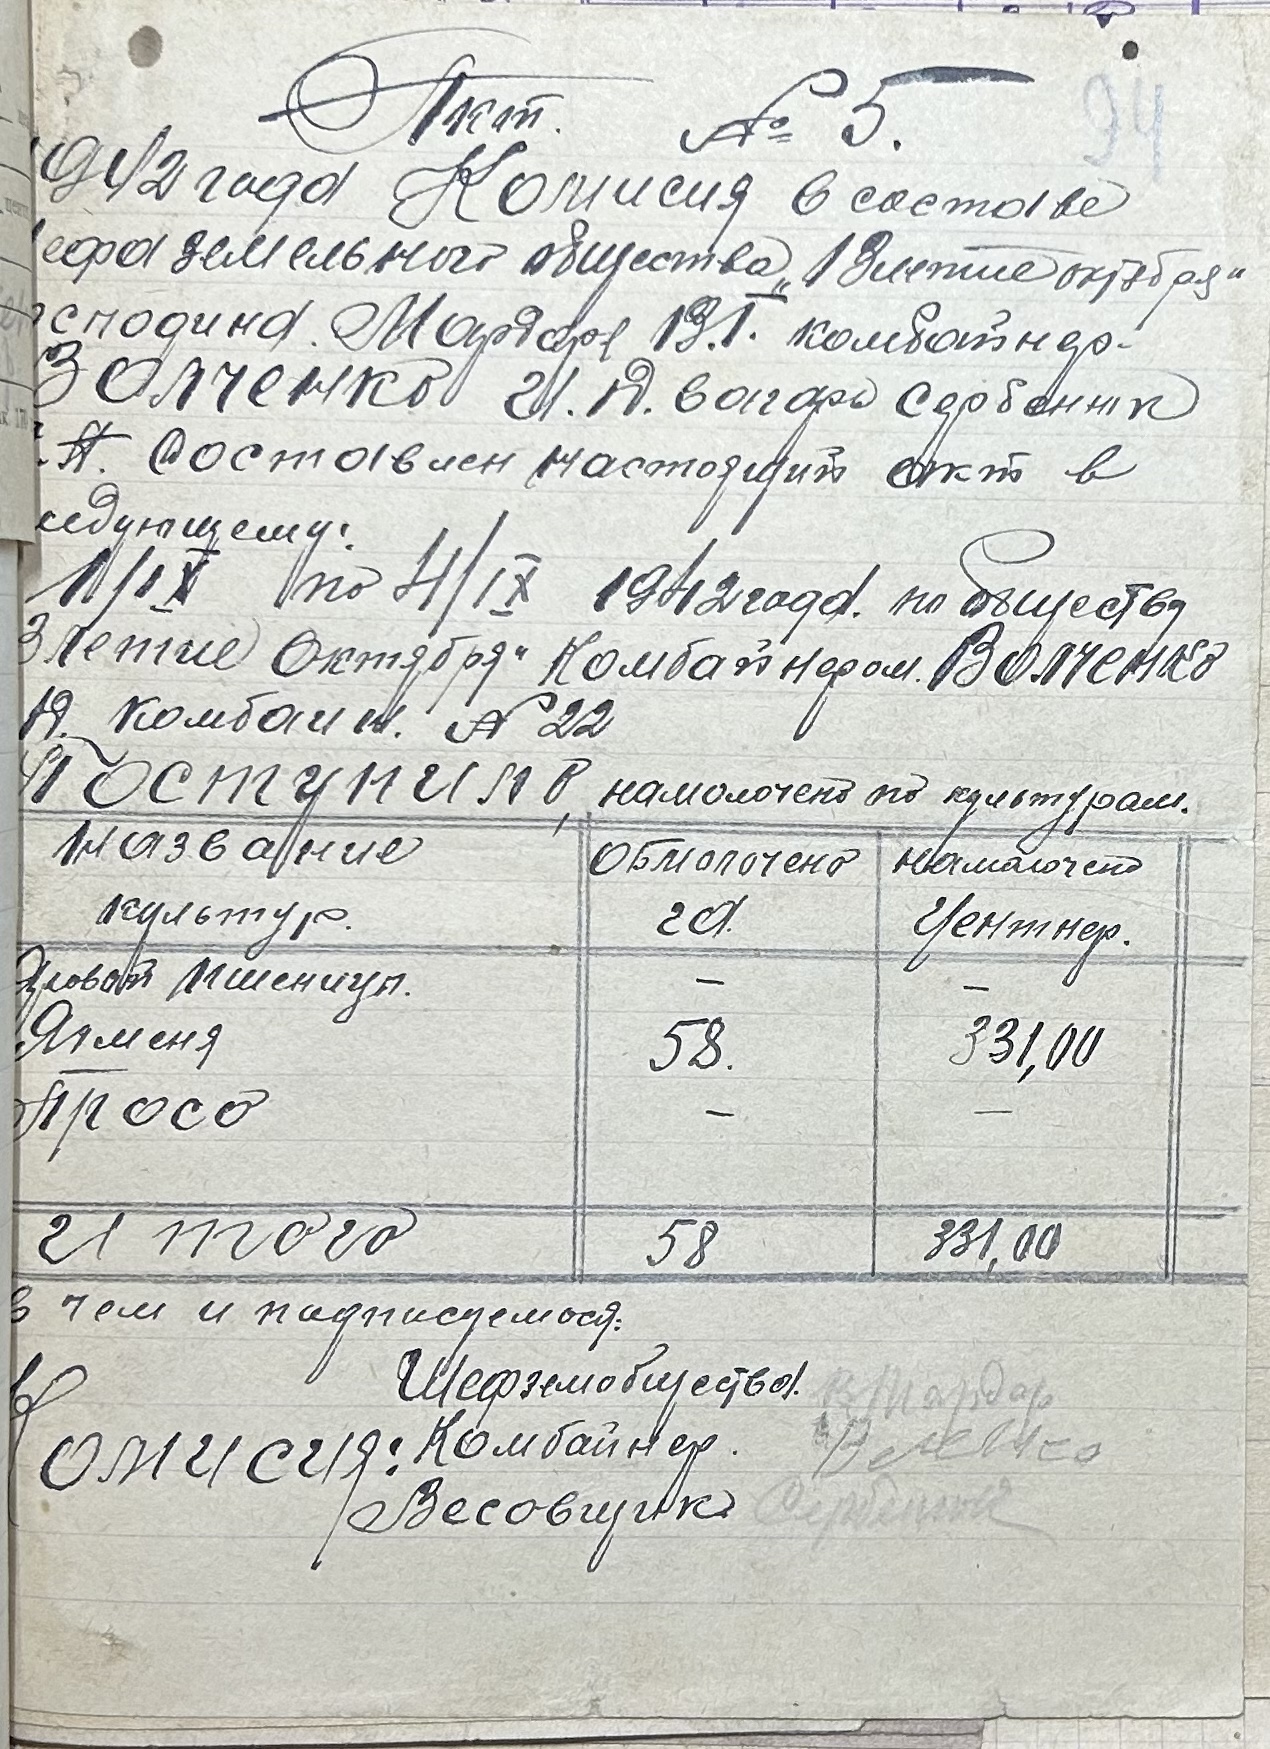 Акт. № 5.
94
1942 года Комисия в составе
шефа земельного общества „13летие октября"
господина. Мардаря В.Г. комбайнер.
Волченко И.А. вагарь Сербенюк
А. Составлен настоящий акт в
ледующему:
1/IX по 4/IX 1942 года. по обществу
3летие Октября" Комбайнером. Волченко
А. комбаин. № 22
Поступило, намолочено по культурам.
Название Обмолочено намолочено
культур. га. Центнер.
Яровой пшеницы. – –
Ячменя 58. 331,00
Просо – –
Итого 58 331,00
в чем и подписуемося:
Шефземобщества. В Мардар
Комисия: Комбайнер.
Весовщик